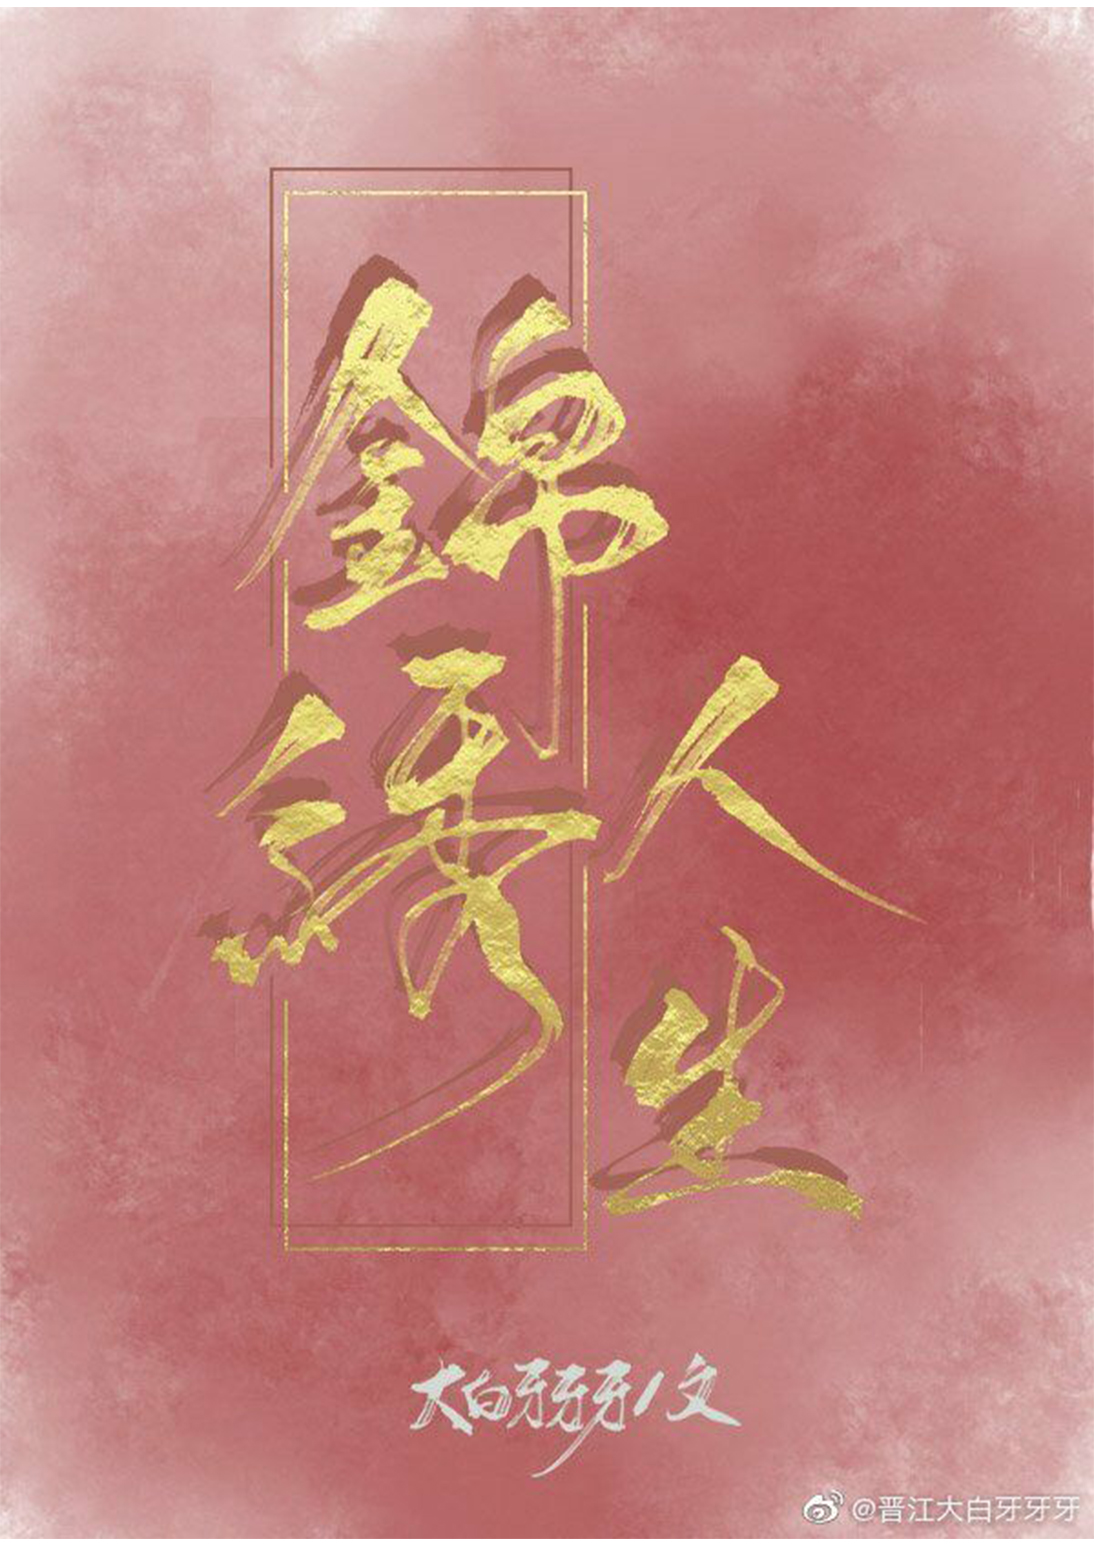 錦繡人生
大白牙牙牙/文
@晋江大白牙牙牙